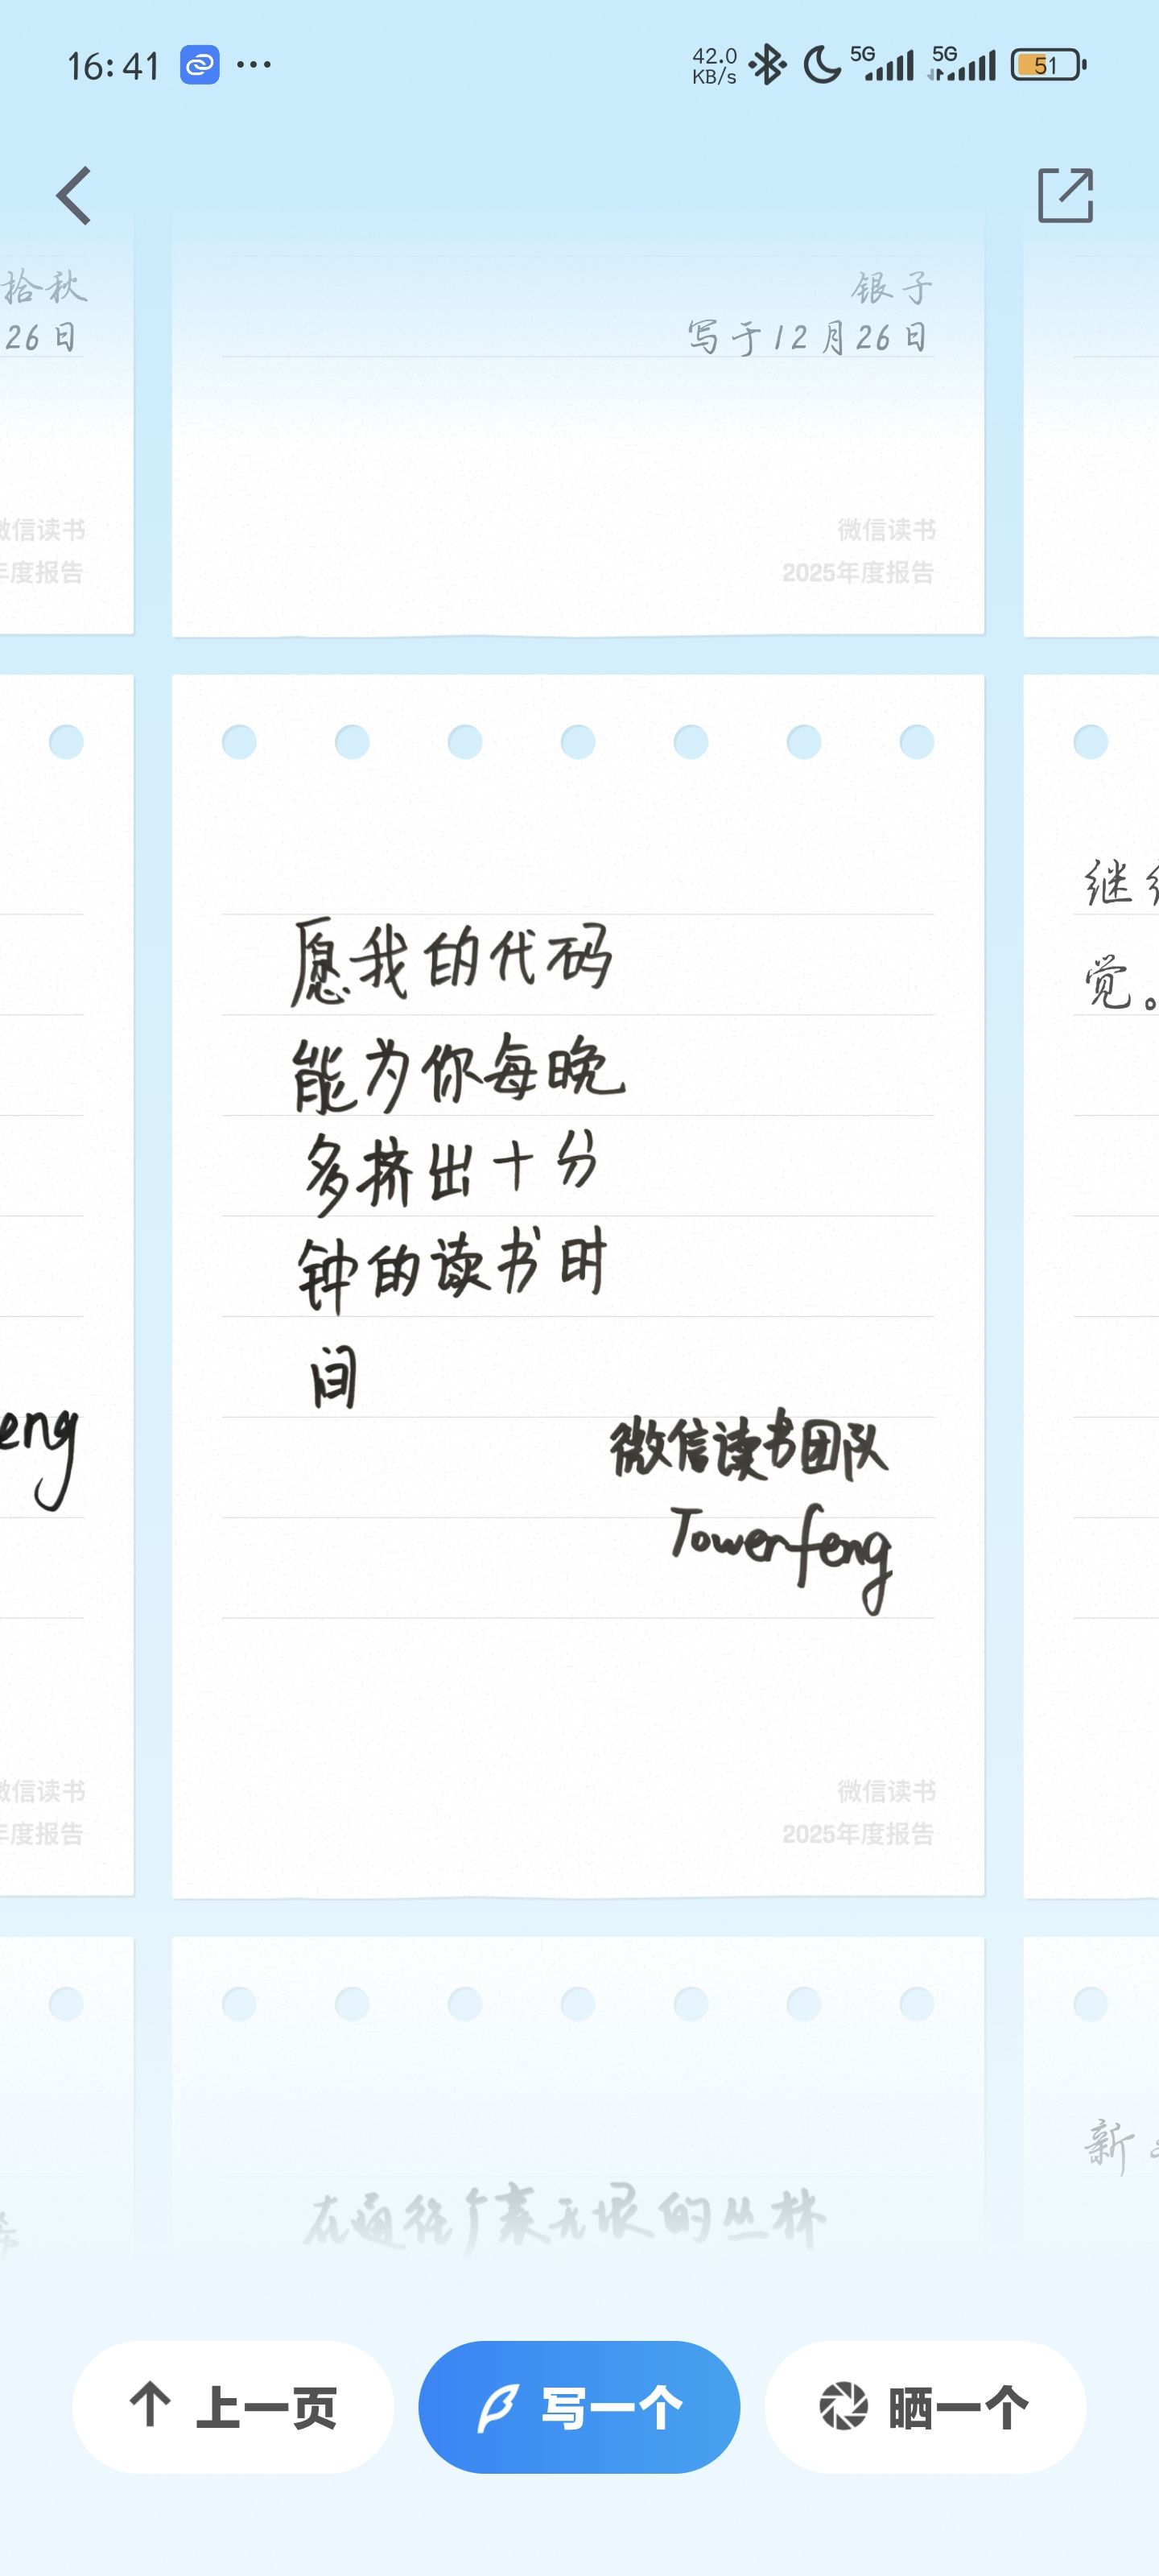 16:41
42.0
KB/s
5G
5G
51
拾秋
26日
银子
写于12月26日
微信读书
年度报告
微信读书
2025年度报告
愿我的代码
能为你每晚
多挤出十分
钟的读书时
间
微信读书团队
Towerfeng
eng
继
觉。
微信读书
年度报告
微信读书
2025年度报告
新
在通往广袤无垠的丛林
上一页
写一个
晒一个